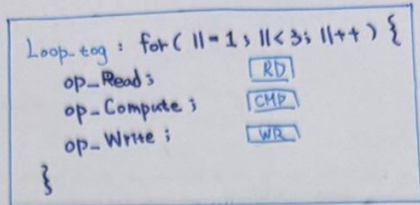 Loop_tog : for( ll=1 ; ll<3 ; ll++ ) {
op_Read ; RD
op_Compute ; CMP
op_Write ; WR
}